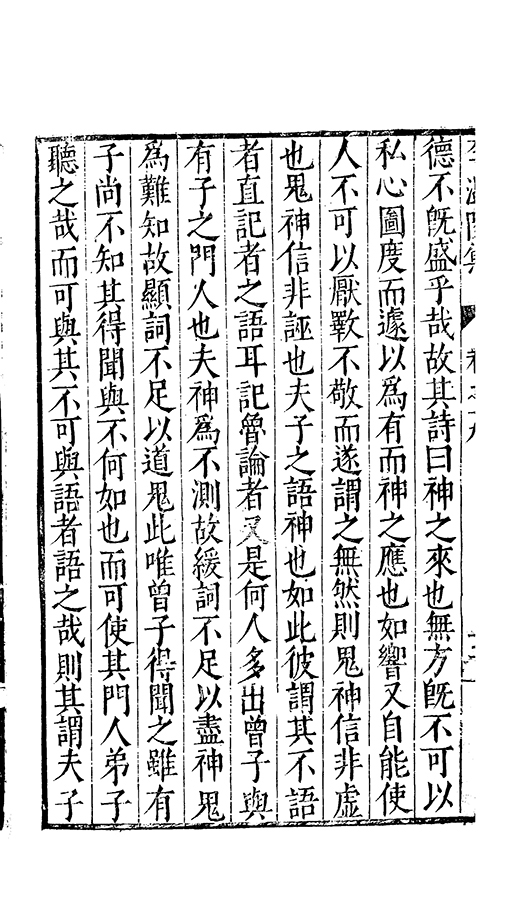 德不旣盛乎哉故其詩曰神之來也無方旣不可以
私心圖度而遽以爲有而神之應也如響又自能使
人不可以厭斁不敬而遂謂之無然則鬼神信非虛
也鬼神信非誣也夫子之語神也如此彼謂其不語
者直記者之語耳記魯論者又是何人多出曾子與
有子之門人也夫神爲不測故緩詞不足以盡神鬼
爲難知故顯詞不足以道鬼此唯曾子得聞之雖有
子尚不知其得聞與不何如也而可使其門人弟子
聽之哉而可與其不可與語者語之哉則其謂夫子